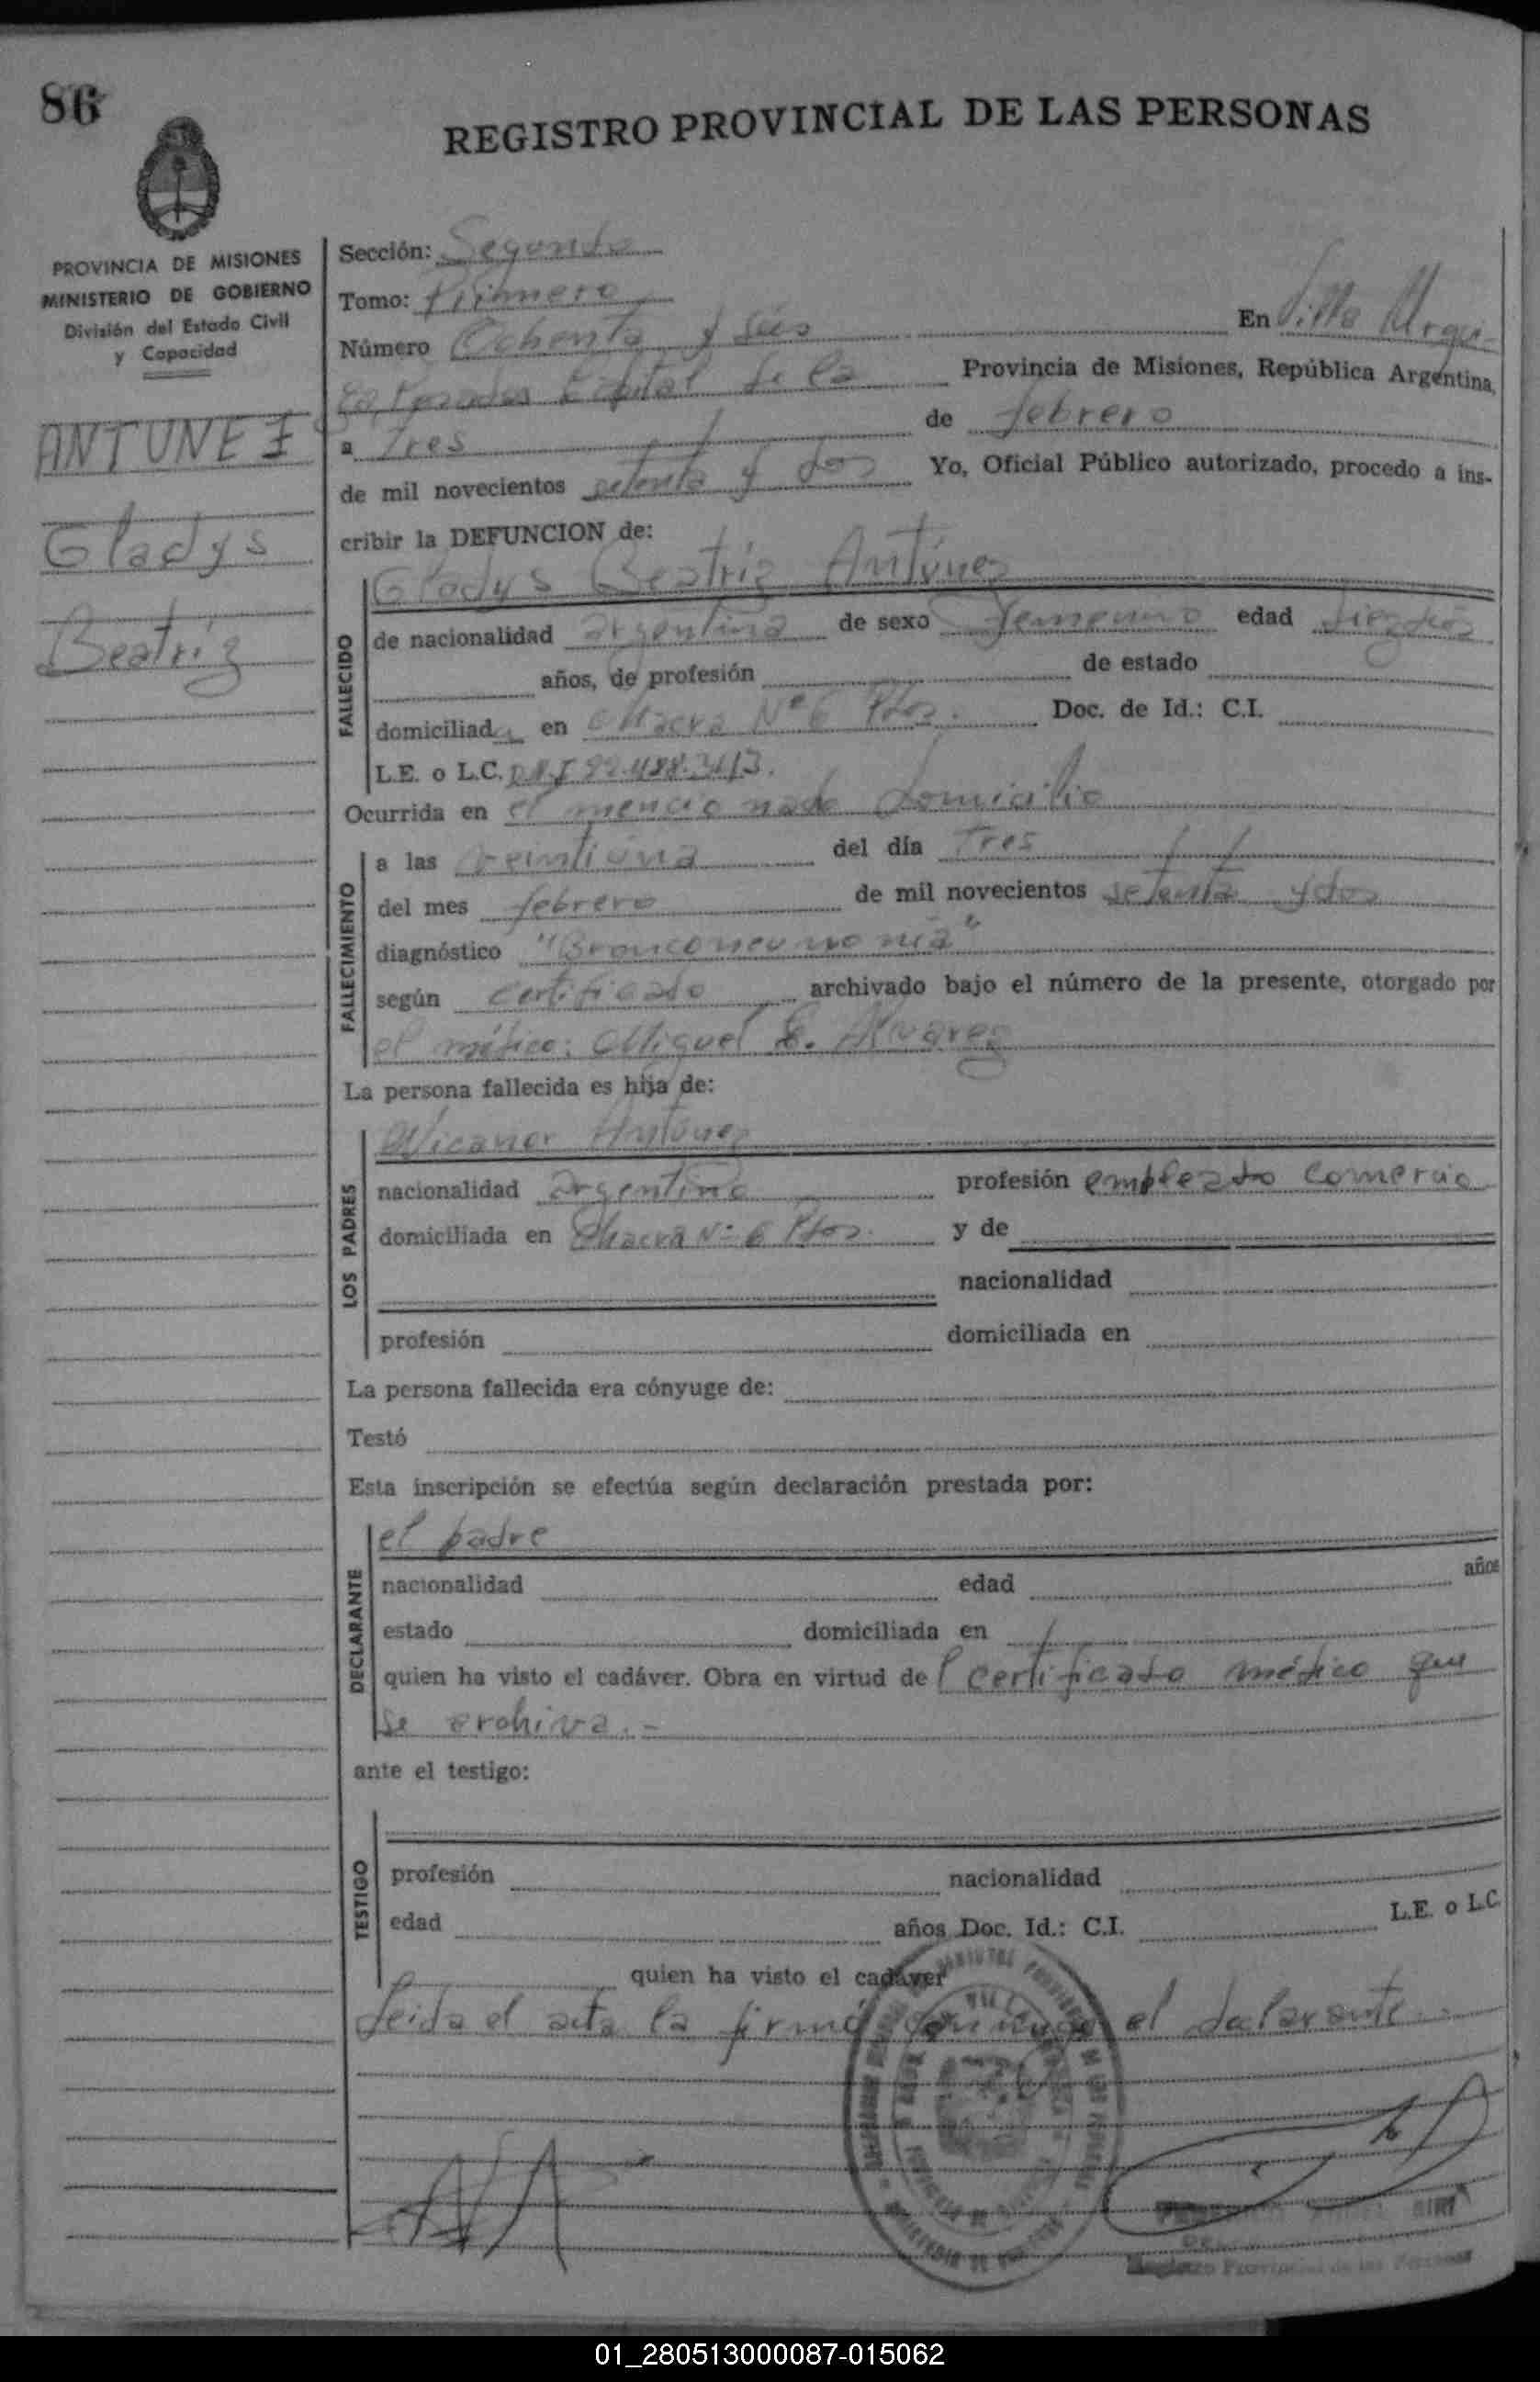 86
REGISTRO PROVINCIAL DE LAS PERSONAS
PROVINCIA DE MISIONES
MINISTERIO DE GOBIERNO
División del Estado Civil
y Capacidad
ANTUNEZ
Gladys
Beatriz
Sección: Segunda
Tomo: Primero
Número Ochenta y seis En Villa Urqui-
za Posadas Capital de la Provincia de Misiones, República Argentina,
a tres de febrero
de mil novecientos setenta y dos Yo, Oficial Público autorizado, procedo a ins-
cribir la DEFUNCION de:
Gladys Beatriz Antúnez
FALLECIDO
de nacionalidad argentina de sexo femenino edad
años, de profesión de estado
domiciliada en Chacra Nº 6 Pdas. Doc. de Id.: C.I.
L.E. o L.C. D.N.I
Ocurrida en el mencionado domicilio
FALLECIMIENTO
a las veintiuna del día tres
del mes febrero de mil novecientos setenta y dos
diagnóstico "Bronconeumonia"
según certificado archivado bajo el número de la presente, otorgado por
el médico: Miguel E. Alvarez
La persona fallecida es hija de:
LOS PADRES
Nicanor Antúnez
nacionalidad argentino profesión empleado comercio
domiciliada en Chacra Nº 6 Pdas. y de
nacionalidad
profesión domiciliada en
La persona fallecida era cónyuge de:
Testó
Esta inscripción se efectúa según declaración prestada por:
DECLARANTE
el padre
nacionalidad edad años
estado domiciliada en
quien ha visto el cadáver. Obra en virtud del certificado médico que
se archiva.-
ante el testigo:
TESTIGO
profesión nacionalidad
edad años Doc. Id.: C.I. L.E. o L.C.
quien ha visto el cadáver
Leida el acta la firma conmigo el declarante.-
Registro Provincial de las Personas
01_280513000087-015062